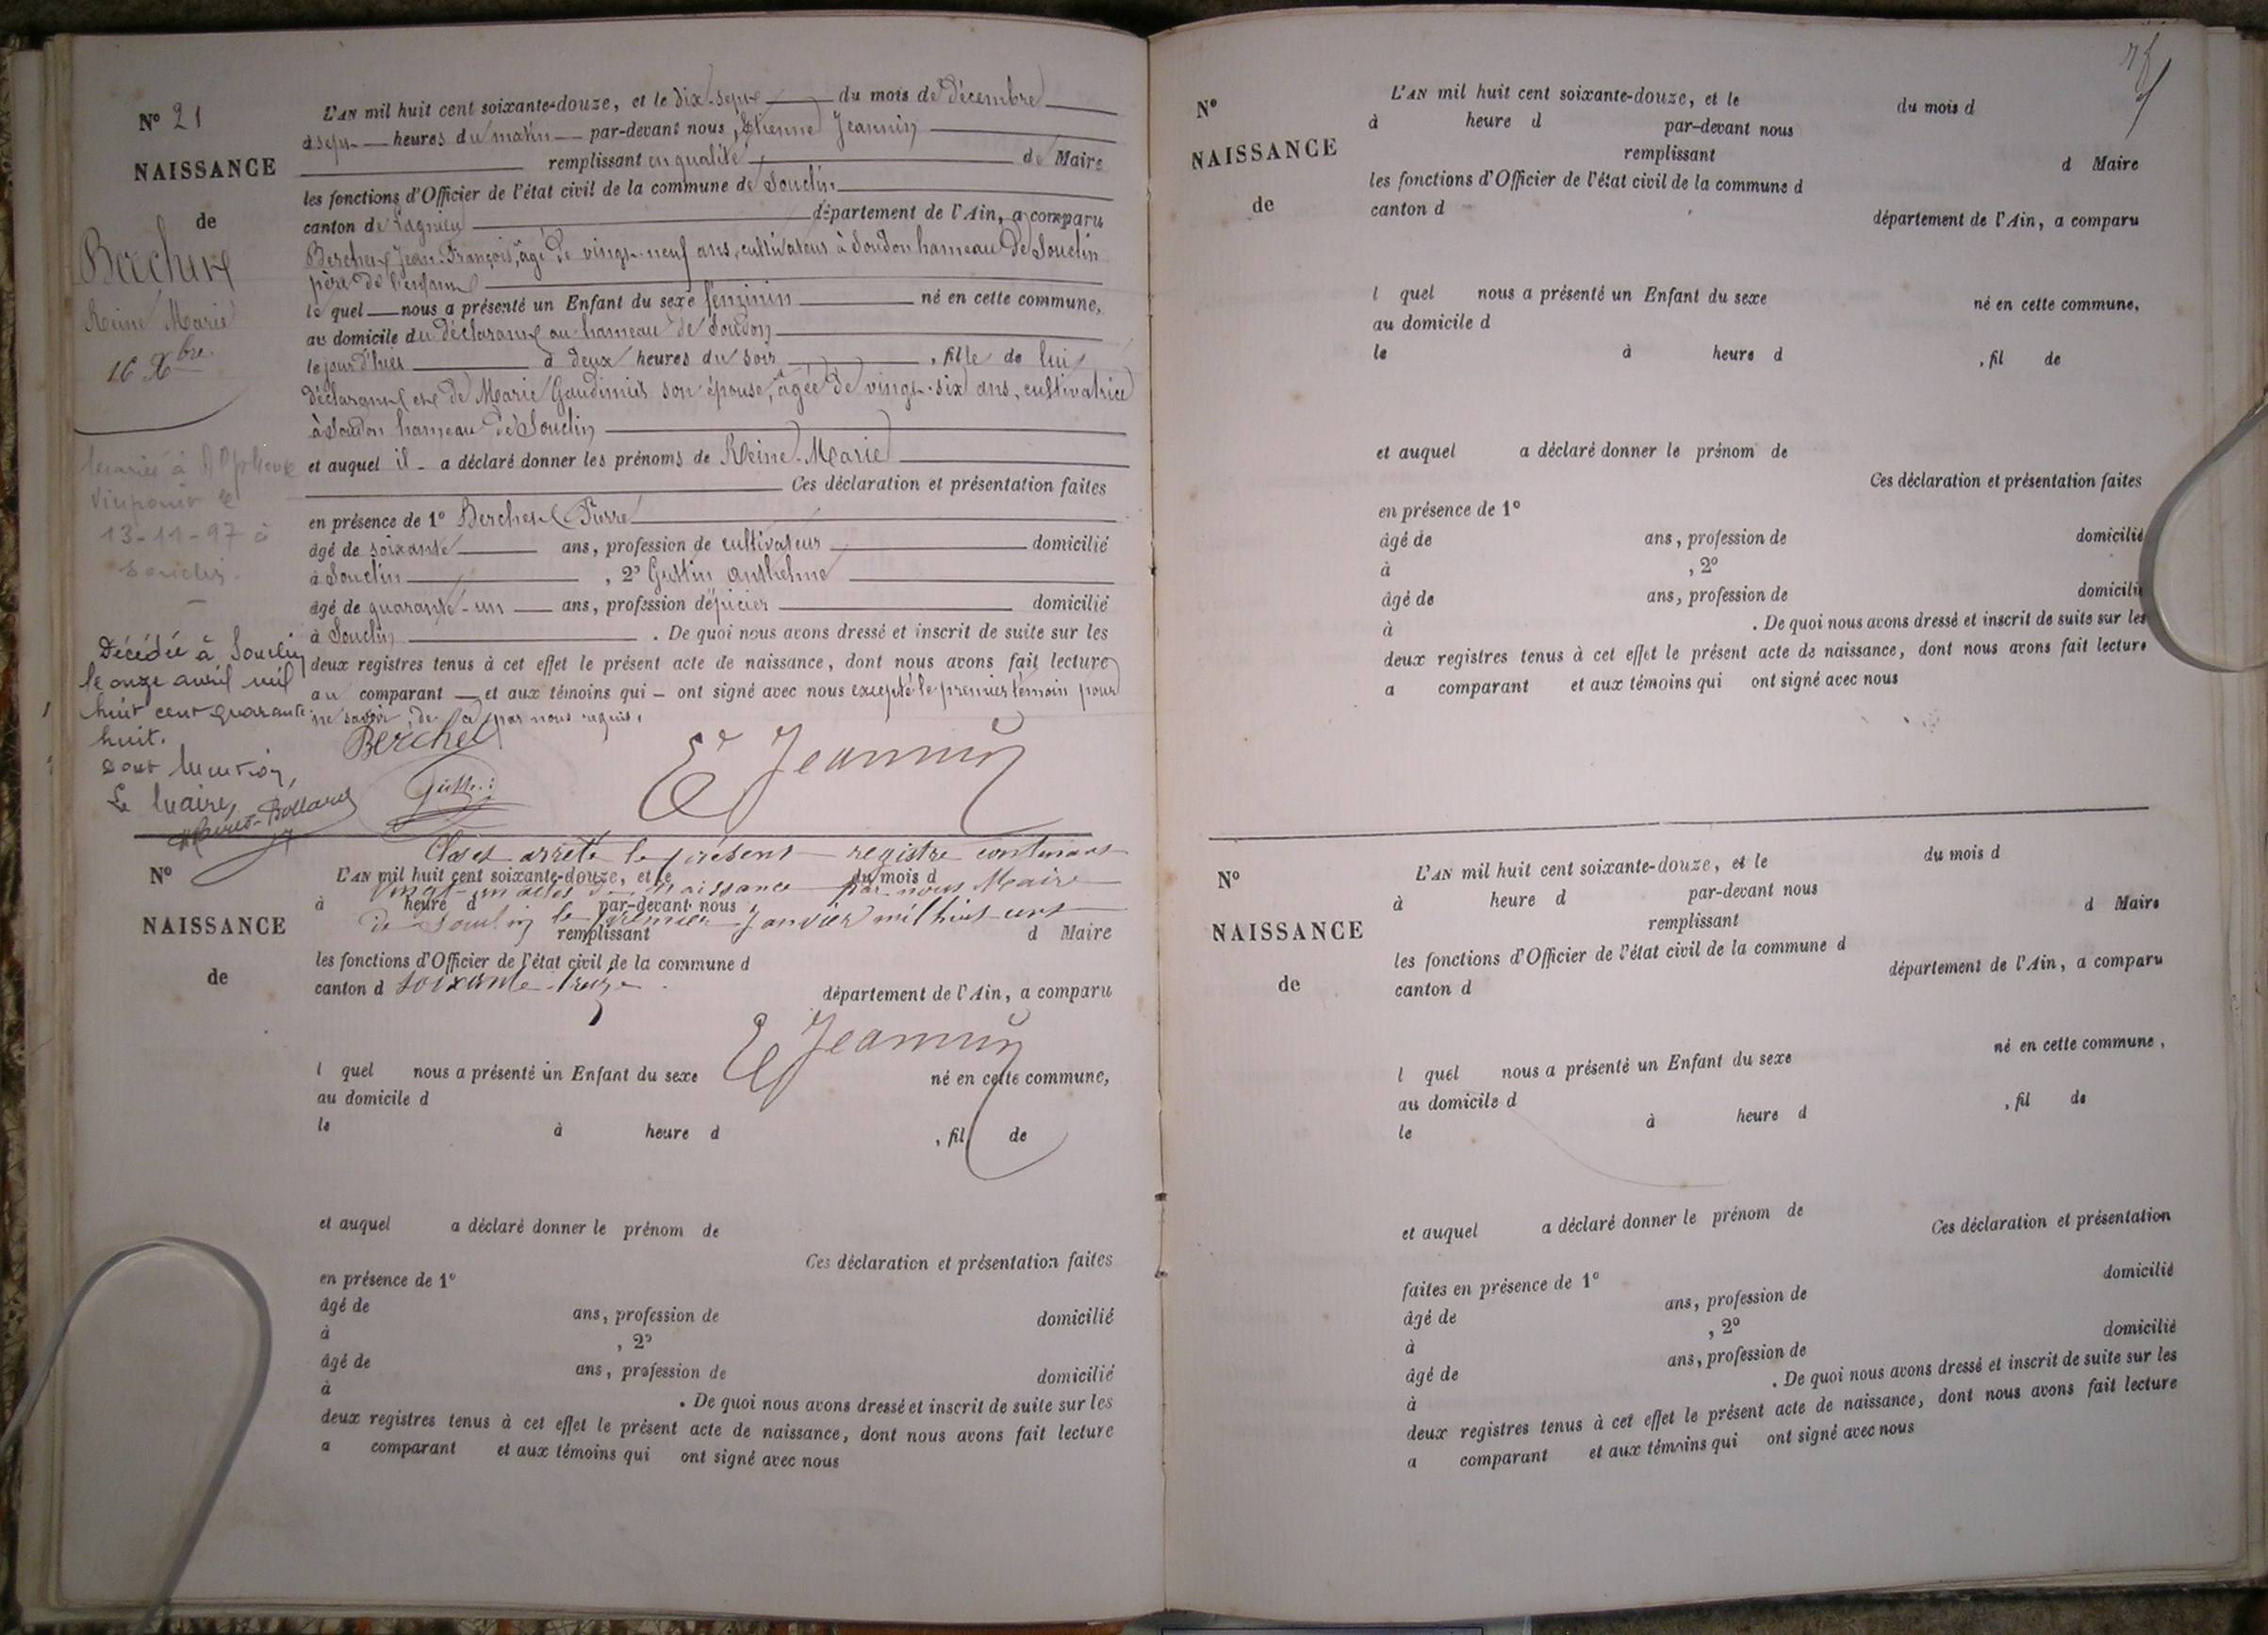 N° 21
NAISSANCE
de
Berchet
Reine Marie
16 Xbre
Mariée à Alphonse
13-11-97 à
Souclin.
Décédée à Souclin
le onze avril mil
huit cent quarante
huit.
Dont mention,
Le Maire,
L'AN mil huit cent soixante-douze, et le dix-sept du mois de Décembre
à sept heures du matin par-devant nous, Etienne Jeannin
remplissant en qualité de Maire
les fonctions d'Officier de l'état civil de la commune de Souclin
canton de Lagnieu département de l'Ain, a comparu
Berchet Jean-François, âgé de vingt-neuf ans, cultivateur à Soudon hameau de Souclin
père de l'enfant
le quel nous a présenté un Enfant du sexe féminin né en cette commune,
au domicile du déclarant au hameau de Soudon
le jour d'hier à deux heures du soir, fille de lui
déclarant et de Marie Gaudimiis son épouse, âgée de vingt-six ans, cultivatrice
à Soudon hameau de Souclin
et auquel il a déclaré donner les prénoms de Reine-Marie
Ces déclaration et présentation faites
en présence de 1° Berchet Pierre
âgé de soixante ans, profession de cultivateur domicilié
à Souclin, 2° Gustin anthelme
âgé de quarante-un ans, profession d'épicier domicilié
à Souclin. De quoi nous avons dressé et inscrit de suite sur les
deux registres tenus à cet effet le présent acte de naissance, dont nous avons fait lecture
au comparant et aux témoins qui ont signé avec nous excepté le premier témoin pour
ne savoir, de ce par nous requis.
Berchet
Gustin
Et Jeannin
Clos et arrêté le présent registre contenant
vingt-un actes de naissance par nous Maire
de Souclin le premier Janvier mil huit cent
soixante-treize
Et Jeannin
N°
NAISSANCE
de
L'AN mil huit cent soixante-douze, et le du mois d
à heure d par-devant nous
remplissant d Maire
les fonctions d'Officier de l'état civil de la commune d
canton d département de l'Ain, a comparu
l quel nous a présenté un Enfant du sexe né en cette commune,
au domicile d
le à heure d , fil de
et auquel a déclaré donner le prénom de
Ces déclaration et présentation faites
en présence de 1°
âgé de ans, profession de domicilié
à , 2°
âgé de ans, profession de domicilié
à . De quoi nous avons dressé et inscrit de suite sur les
deux registres tenus à cet effet le présent acte de naissance, dont nous avons fait lecture
a comparant et aux témoins qui ont signé avec nous
N°
NAISSANCE
de
L'AN mil huit cent soixante-douze, et le du mois d
à heure d par-devant nous
remplissant d Maire
les fonctions d'Officier de l'état civil de la commune d
canton d département de l'Ain, a comparu
l quel nous a présenté un Enfant du sexe né en cette commune,
au domicile d
le à heure d , fil de
et auquel a déclaré donner le prénom de
Ces déclaration et présentation faites
en présence de 1°
âgé de ans, profession de domicilié
à , 2°
âgé de ans, profession de domicilié
à . De quoi nous avons dressé et inscrit de suite sur les
deux registres tenus à cet effet le présent acte de naissance, dont nous avons fait lecture
a comparant et aux témoins qui ont signé avec nous
N°
NAISSANCE
de
L'AN mil huit cent soixante-douze, et le du mois d
à heure d par-devant nous
remplissant d Maire
les fonctions d'Officier de l'état civil de la commune d
canton d département de l'Ain, a comparu
l quel nous a présenté un Enfant du sexe né en cette commune,
au domicile d
le à heure d , fil de
et auquel a déclaré donner le prénom de
Ces déclaration et présentation
faites en présence de 1° domicilié
âgé de ans, profession de
à , 2° domicilié
âgé de ans, profession de
à . De quoi nous avons dressé et inscrit de suite sur les
deux registres tenus à cet effet le présent acte de naissance, dont nous avons fait lecture
a comparant et aux témoins qui ont signé avec nous